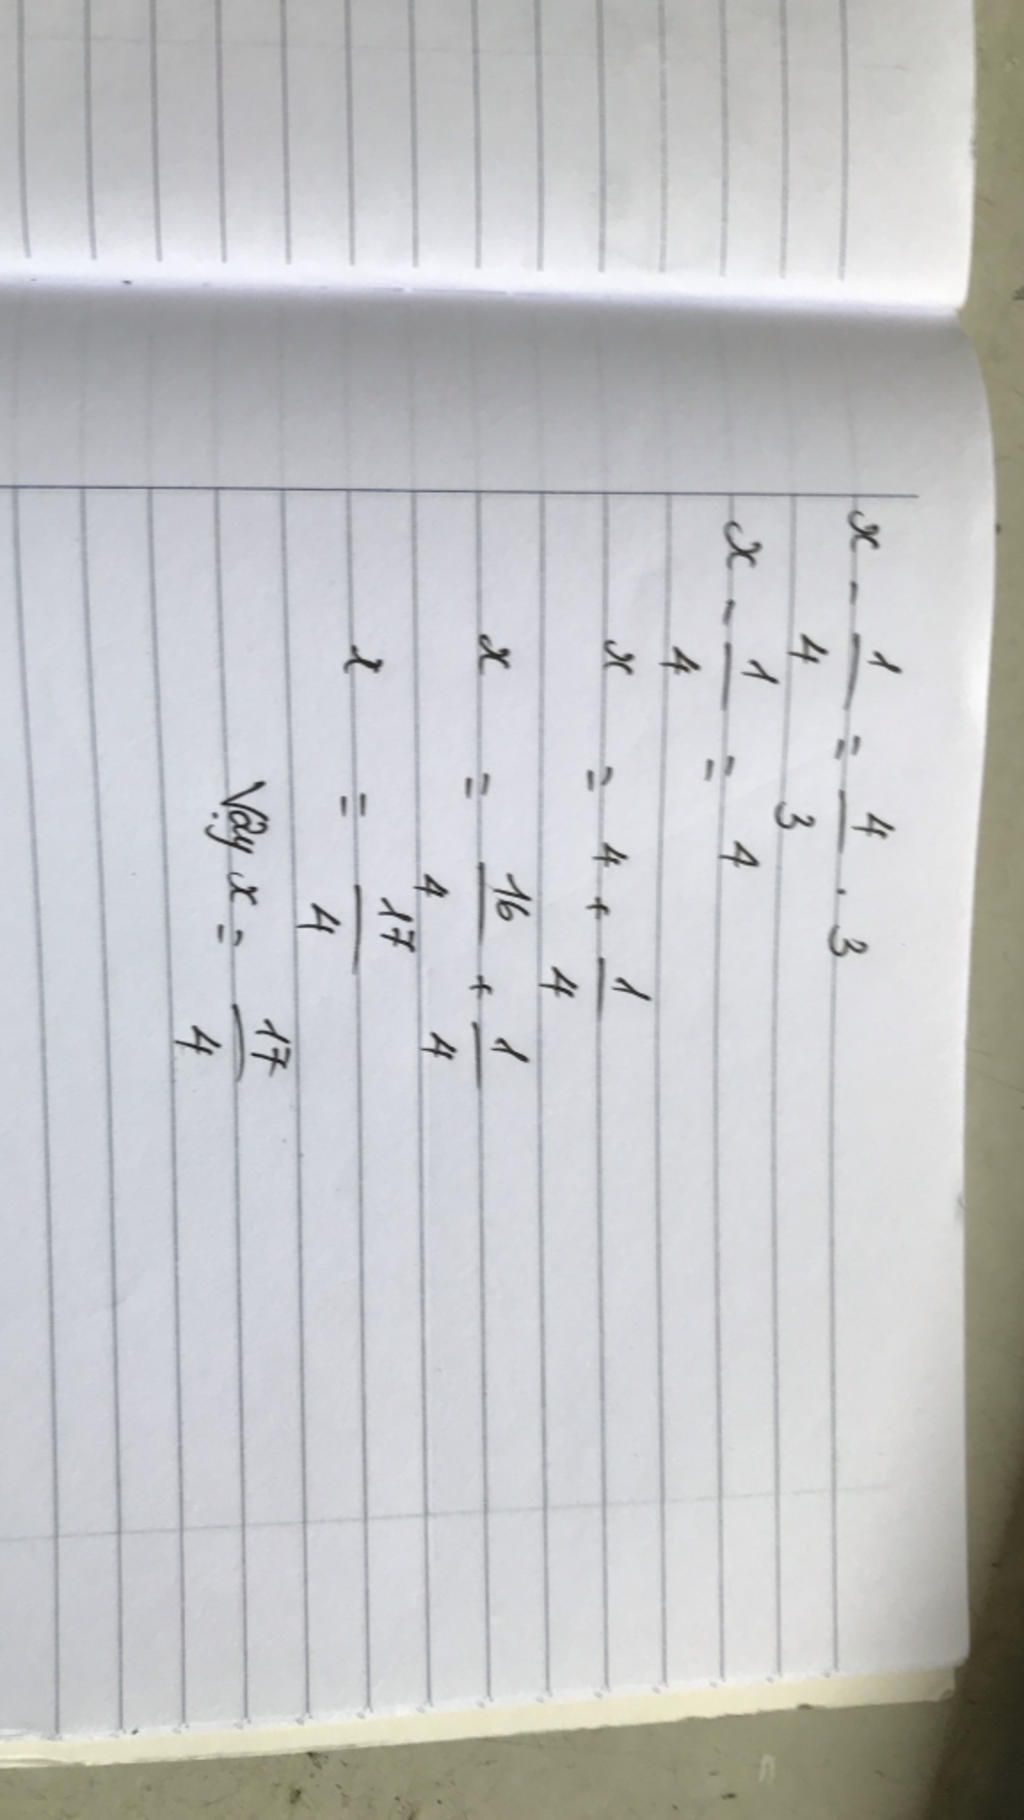 x - 1/4 = 4/3 . 3
x - 1/4 = 4
x = 4 + 1/4
x = 16/4 + 1/4
x = 17/4
Vậy x = 17/4